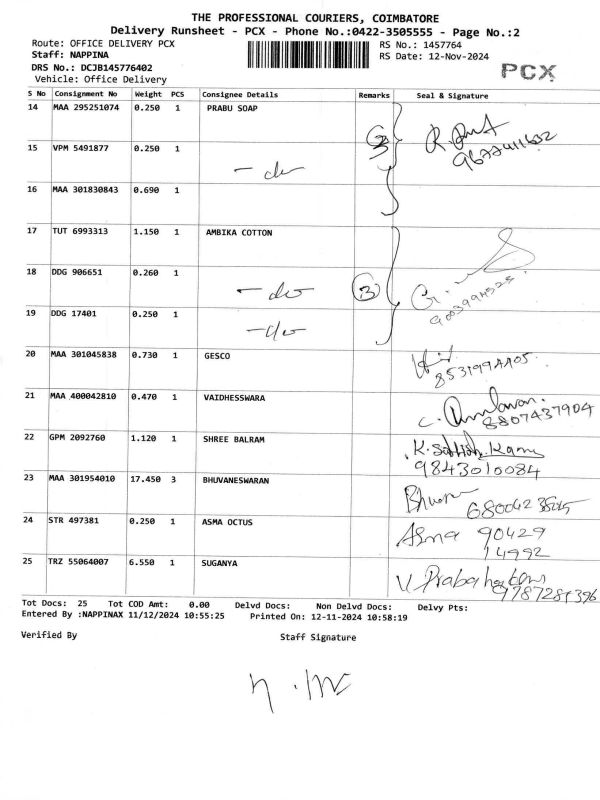 THE PROFESSIONAL COURIERS, COIMBATORE
Delivery Runsheet - PCX - Phone No.:0422-3505555 - Page No.:2
Route: OFFICE DELIVERY PCX
Staff: NAPPINA
DRS No.: DCJB145776402
Vehicle: Office Delivery
RS No.: 1457764
RS Date: 12-Nov-2024
PCX
S No Consignment No Weight PCS Consignee Details Remarks Seal & Signature
14 MAA 295251074 0.250 1 PRABU SOAP
15 VPM 5491877 0.250 1 - do
3
16 MAA 301830843 0.690 1
17 TUT 6993313 1.150 1 AMBIKA COTTON
18 DDG 906651 0.260 1 - do 3
19 DDG 17401 0.250 1 - do
20 MAA 301045838 0.730 1 GESCO
21 MAA 400042810 0.470 1 VAIDHESSWARA
8807437904
22 GPM 2092760 1.120 1 SHREE BALRAM K. Sathish Kamu
9843010084
23 MAA 301954010 17.450 3 BHUVANESWARAN Bhuvan
24 STR 497381 0.250 1 ASMA OCTUS Asma 90429
14992
25 TRZ 55064007 6.550 1 SUGANYA V. Prabaharan
9787281396
Tot Docs: 25 Tot COD Amt: 0.00 Delvd Docs: Non Delvd Docs: Delvy Pts:
Entered By :NAPPINAX 11/12/2024 10:55:25 Printed On: 12-11-2024 10:58:19
Verified By Staff Signature